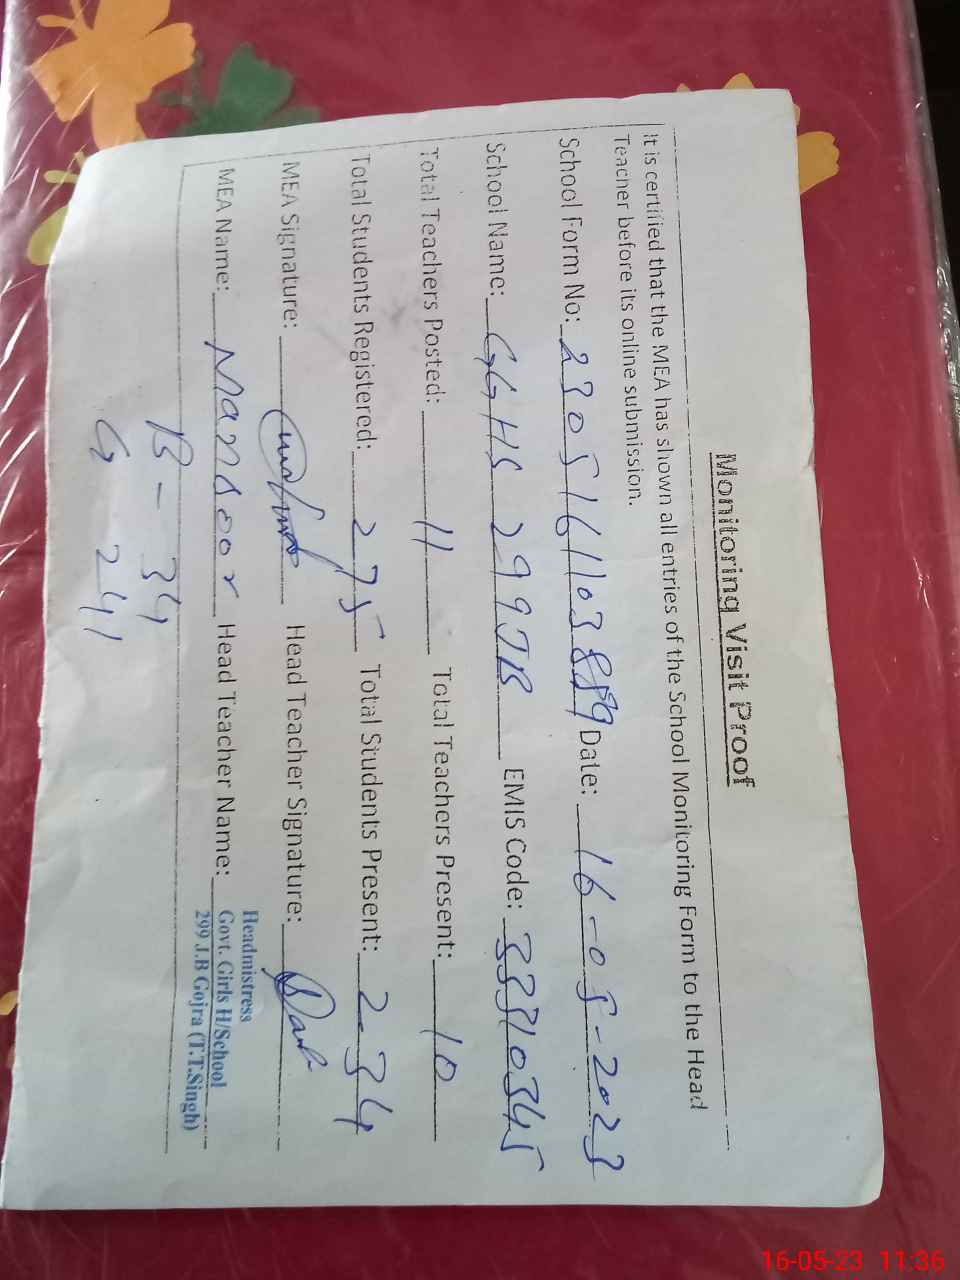 Monitoring Visit Proof
It is certified that the MEA has shown all entries of the School Monitoring Form to the Head
Teacher before its online submission.
School Form No: 2305161103889 Date: 16-05-2023
School Name: GGHS 299JB EMIS Code: 33310345
Total Teachers Posted: 11 Total Teachers Present: 10
Total Students Registered: 275 Total Students Present: 234
MEA Signature: Head Teacher Signature:
MEA Name: Mansoor Head Teacher Name:
Headmistress
Govt. Girls H/School
299 J.B Gojra (T.T.Singh)
B - 34
G 241
16-05-23 11:36